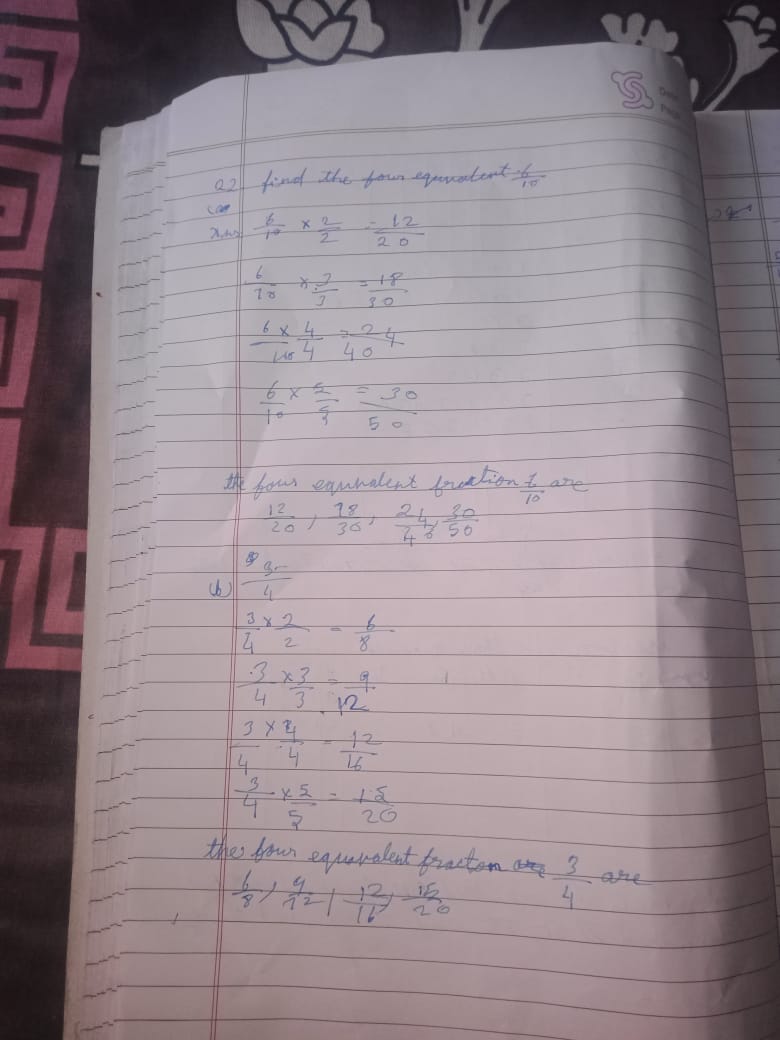 Q2 find the four equivalent 6/10
Ans 6/10 × 2/2 = 12/20
6/10 × 3/3 = 18/30
6/10 × 4/4 = 24/40
6/10 × 5/5 = 30/50
the four equivalent fraction /10 are
12/20, 18/30, 24/40, 30/50
(b) 3/4
3/4 × 2/2 = 6/8
3/4 × 3/3 = 9/12
3/4 × 4/4 = 12/16
3/4 × 5/5 = 15/20
the four equivalent fracton 3/4 are
6/8, 9/12, 12/16, 15/20